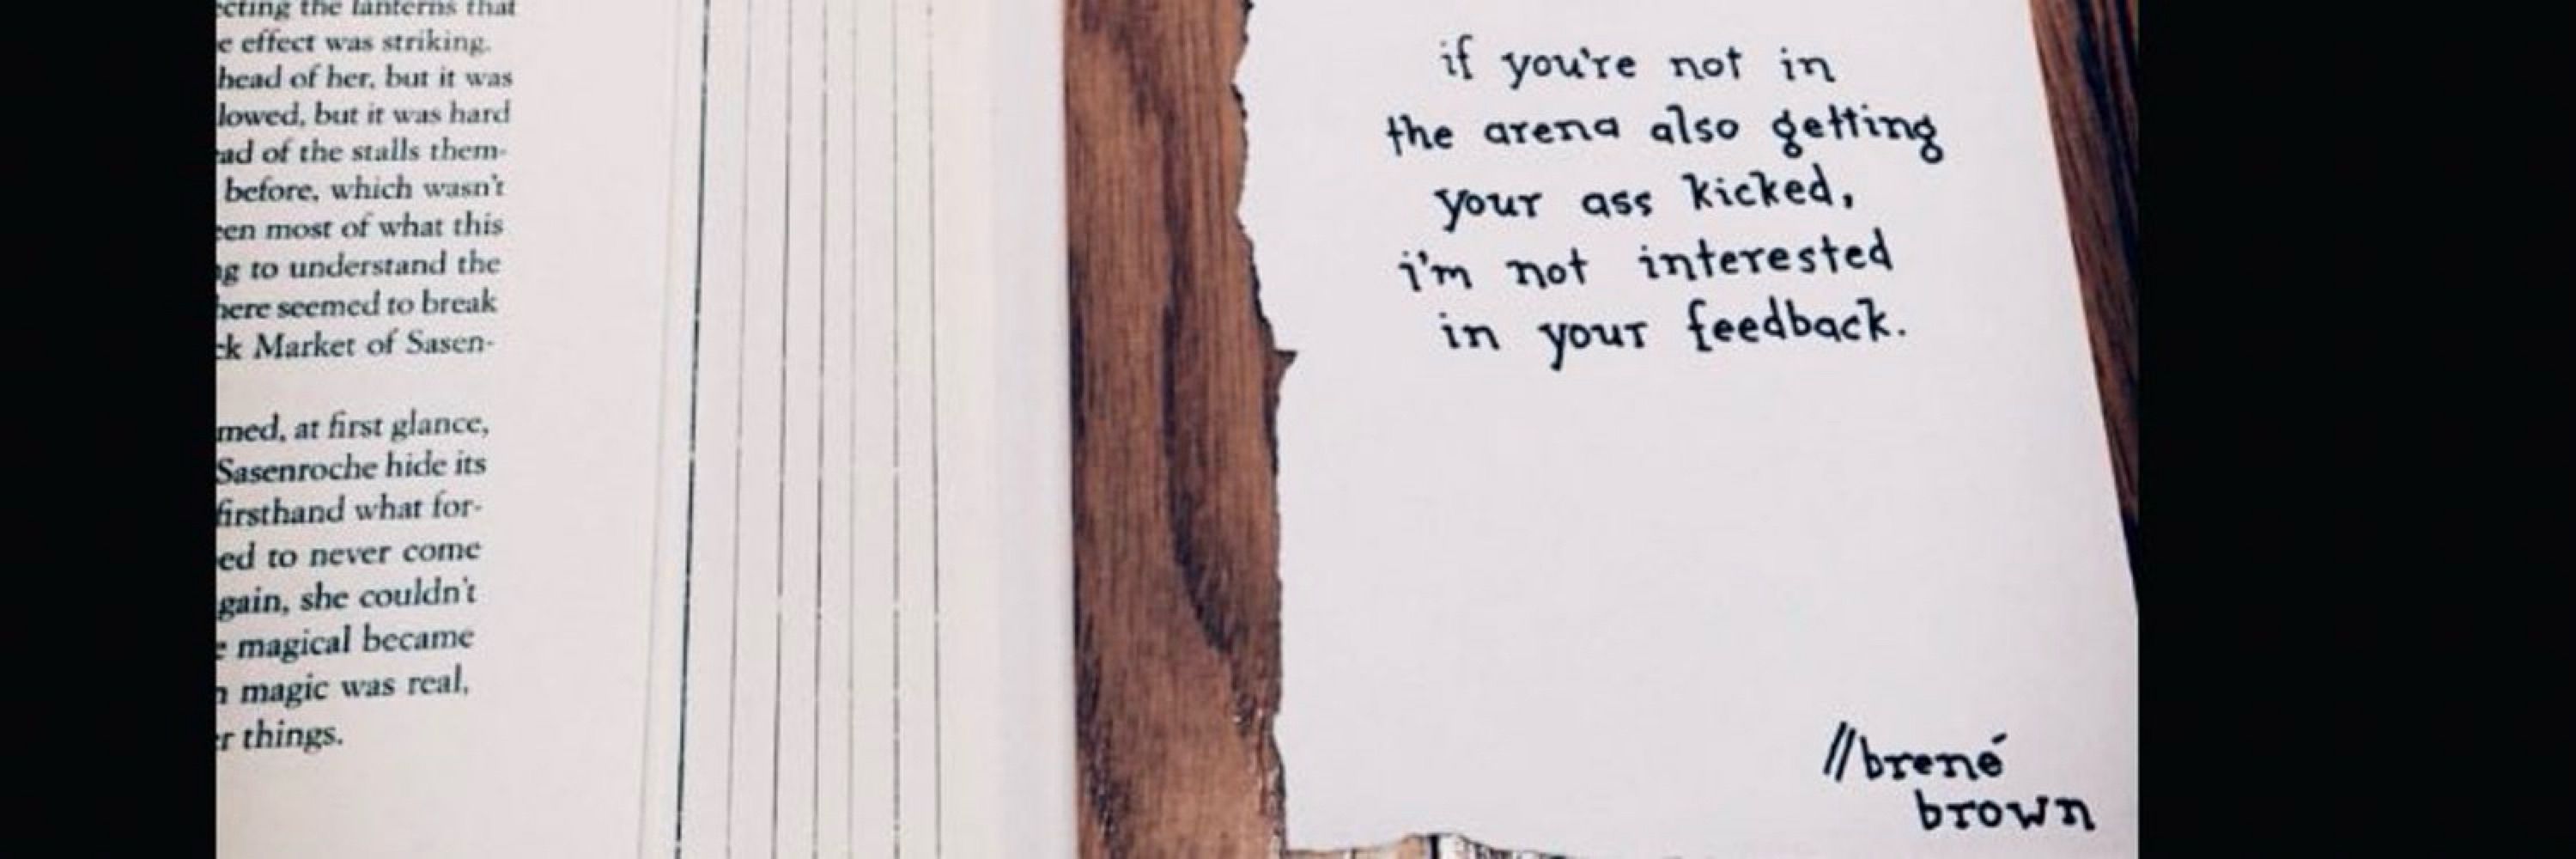 ecting the lanterns that
e effect was striking.
head of her, but it was
lowed, but it was hard
ad of the stalls them-
before, which wasn't
een most of what this
ng to understand the
here seemed to break
ck Market of Sasen-
med, at first glance,
Sasenroche hide its
firsthand what for-
ed to never come
gain, she couldn't
e magical became
n magic was real,
r things.
if you're not in
the arena also getting
your ass kicked,
i'm not interested
in your feedback.
//brené
brown